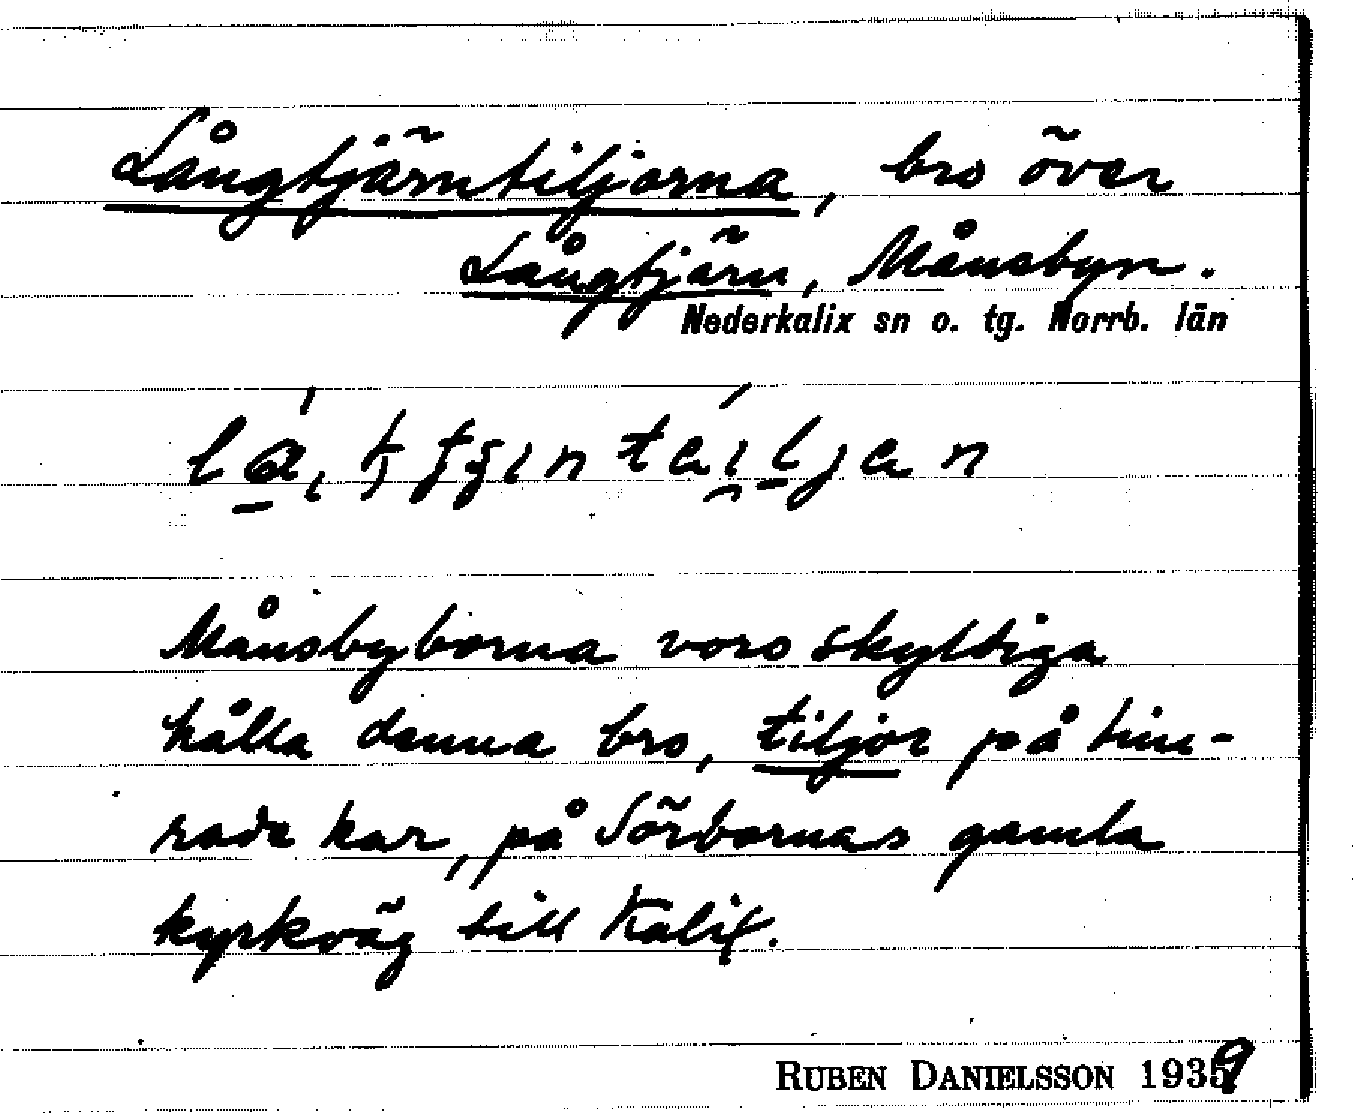 Långtjärntiljorna, bro över
Långtjärn, Månsbyn.
Nederkalix sn o. tg. Norrb. län
Månsbyborna voro skyldiga
hålla denna bro, tiljor på tim-
rade kar, på Sörbornas gamla
kyrkväg till Kalix.
RUBEN DANIELSSON 1939